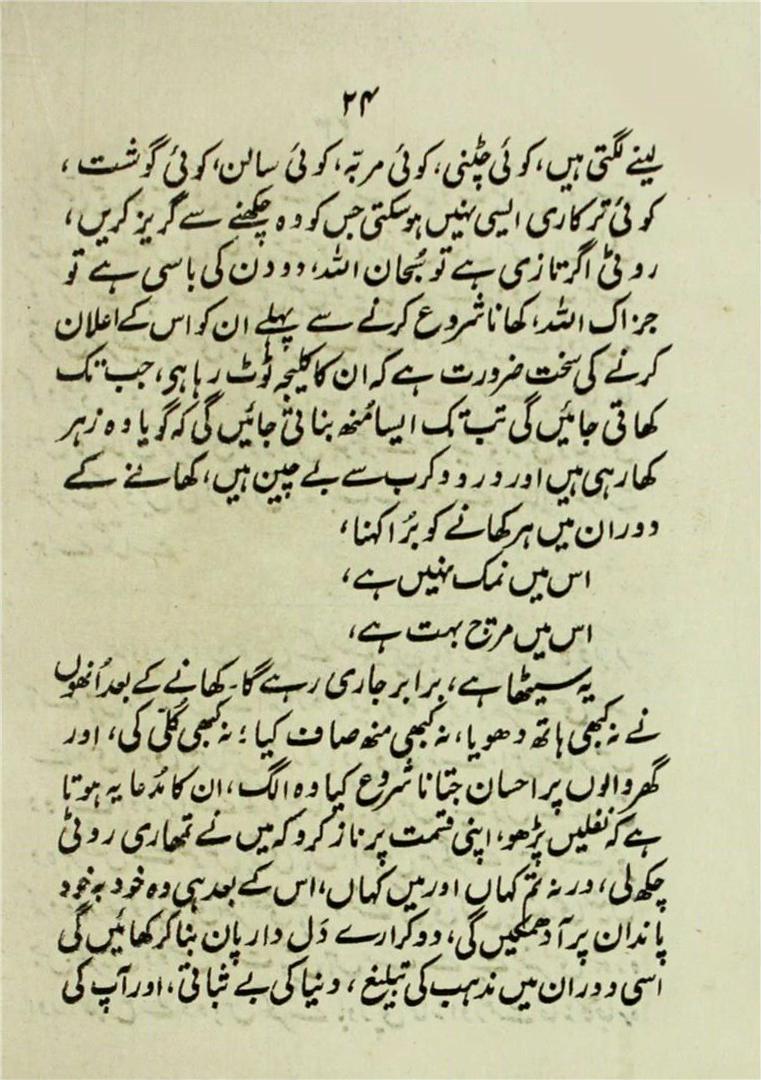 ۲۴
لینے لگتی ہیں، کوئی چٹنی، کوئی مربّہ، کوئی سالن، کوئی گوشت،
کوئی ترکاری ایسی نہیں ہوسکتی جس کو وہ چکھنے سے گریز کریں،
روٹی اگر تازی ہے تو سُبحان اللہ، دو دن کی باسی ہے تو
جزاک اللہ، کھانا شروع کرنے سے پہلے ان کو اس کے اعلان
کرنے کی سخت ضرورت ہے کہ ان کا کلیجہ ٹوٹ رہا ہی، جب تک
کھاتی جائیں گی تب تک ایسا مُنھ بناتی جائیں گی کہ گویا وہ زہر
کھا رہی ہیں اور درد و کرب سے بے چین ہیں، کھانے کے
دوران میں ہر کھانے کو بُرا کہنا،
اس میں نمک نہیں ہے،
اس میں مرچ بہت ہے،
یہ سیٹھا ہے، برابر جاری رہے گا۔ کھانے کے بعد اُنھوں
نے نہ کبھی ہاتھ دھویا، نہ کبھی منھ صاف کیا؛ نہ کبھی کُلّی کی، اور
گھر والوں پر احسان جتانا شروع کیا وہ الگ، ان کا مُدعا یہ ہوتا
ہے کہ نفلیں پڑھو، اپنی قسمت پر ناز کرو کہ میں نے تمھاری روٹی
چکھ لی، ورنہ تم کہاں اور میں کہاں، اس کے بعد ہی وہ خود بہ خود
پاندان پر آ دھمکیں گی، دو کرارے دَل دار پان بنا کر کھائیں گی
اسی دوران میں مذہب کی تبلیغ، دنیا کی بے ثباتی، اور آپ کی